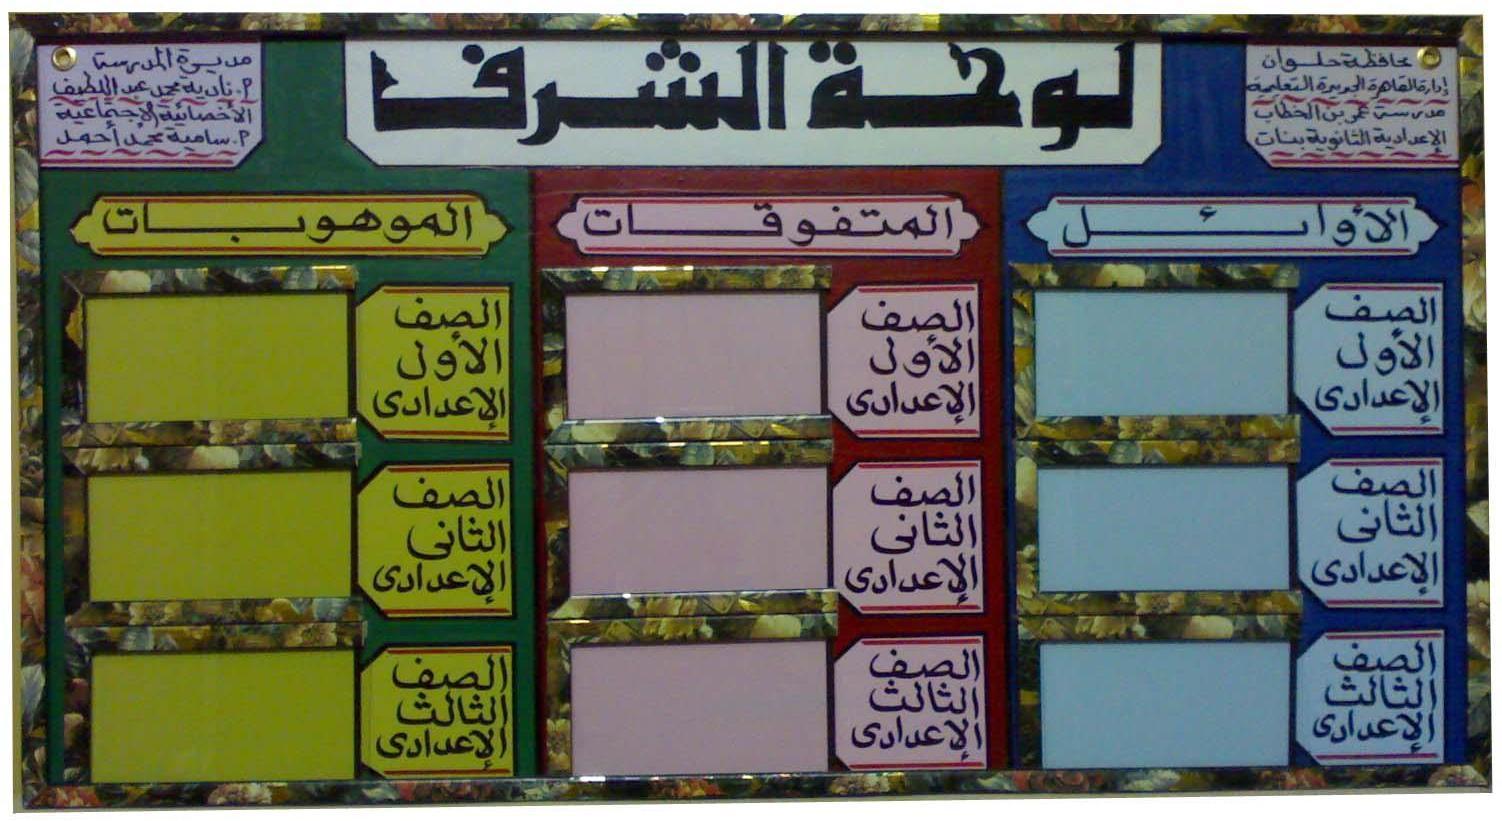 محافظة حلوان
إدارة القاهرة الجديدة التعليمية
مدرسة عمر بن الخطاب
الإعدادية الثانوية بنات
لوحة الشرف
مديرة المدرسة
أ. نادية محمد عبد اللطيف
الأخصائية الإجتماعية
أ. سامية محمد أحمد
الأوائل
الصف
الأول
الإعدادى
الصف
الثانى
الإعدادى
الصف
الثالث
الإعدادى
المتفوقات
الصف
الأول
الإعدادى
الصف
الثانى
الإعدادى
الصف
الثالث
الإعدادى
الموهوبات
الصف
الأول
الإعدادى
الصف
الثانى
الإعدادى
الصف
الثالث
الإعدادى